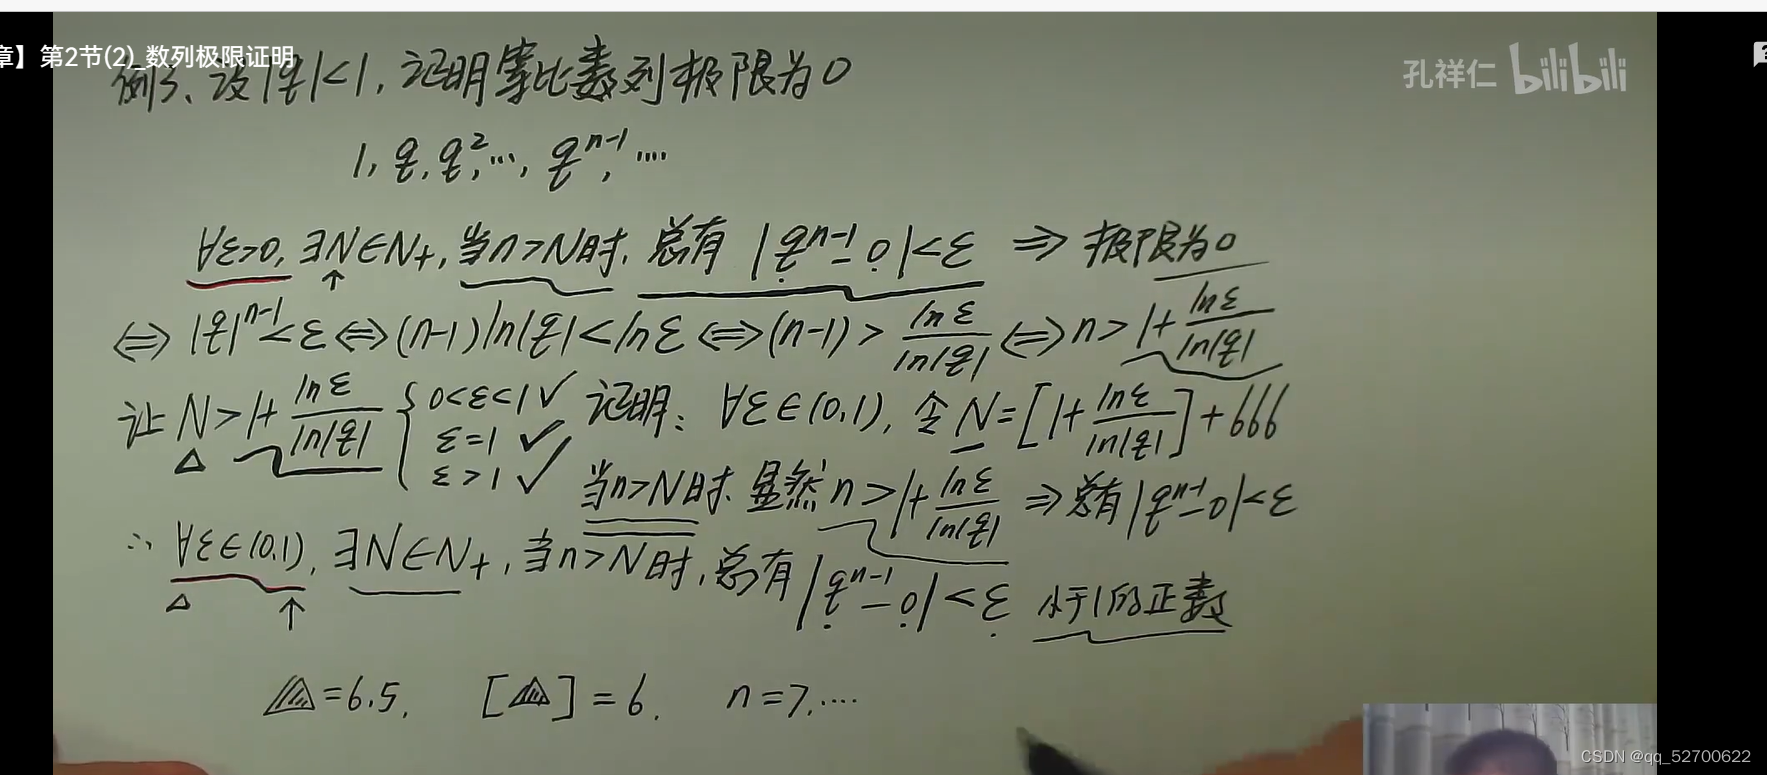 章】第2节(2)_数列极限证明
孔祥仁 bilibili
例3、设|q|<1,证明等比数列极限为0
1, q, q², …, qⁿ⁻¹, ….
∀ε>0, ∃N∈N₊, 当n>N时, 总有 |qⁿ⁻¹-0|<ε ⇒ 极限为0
⇔ |q|ⁿ⁻¹<ε ⇔ (n-1)ln|q|<lnε ⇔ (n-1) > lnε/ln|q| ⇔ n > 1+lnε/ln|q|
让 N>1+lnε/ln|q| { 0<ε<1 ✓ 证明: ∀ε∈(0,1), 令N=[1+lnε/ln|q|]+666
ε=1 ✓
ε>1 ✓ 当n>N时, 显然 n>1+lnε/ln|q| ⇒ 总有|qⁿ⁻¹-0|<ε
∴ ∀ε∈(0,1), ∃N∈N₊, 当n>N时, 总有|qⁿ⁻¹-0|<ε 小于1的正数
△=6.5, [△]=6. n=7,….
CSDN @qq_52700622